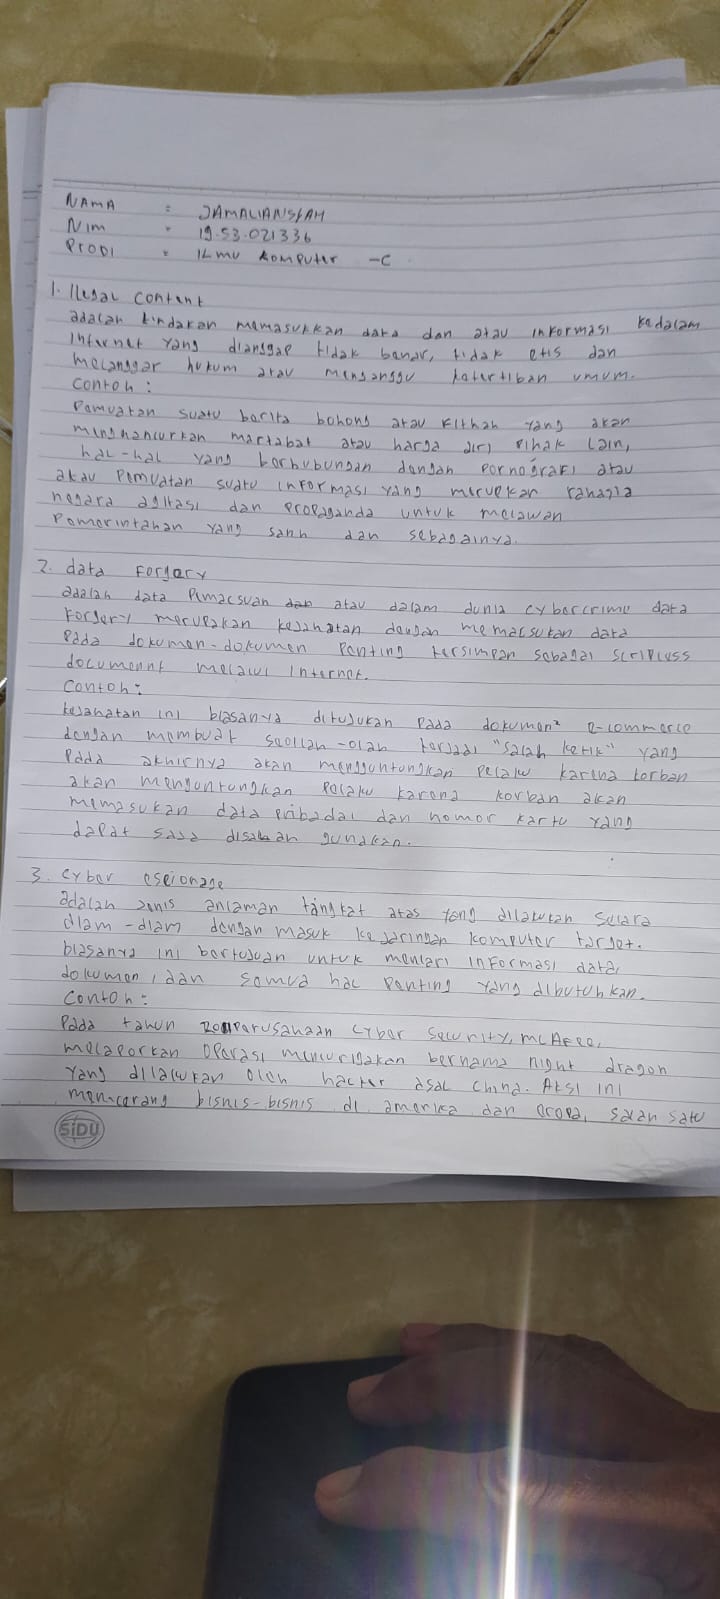 NAMA : JAMALIANSYAH
NIM : 19.53.021336
PRODI : ILMU KOMPUTER -C
1. Ilegal content
adalah tindakan memasukkan data dan atau informasi kedalam
internet yang dianggap tidak benar, tidak etis dan
melanggar hukum atau mengganggu ketertiban umum.
contoh :
Pemuatan suatu berita bohong atau Fithah yang akan
menghancurkan martabat atau harga diri pihak lain,
hal-hal yang berhubungan dengan pornografi atau
atau pemuatan suatu informasi yang merupakan rahasia
negara agitasi dan propaganda untuk melawan
Pemerintahan yang sanh dan sebagainya.
2. data Forgery
adalah data Pemacsuan dan atau dalam dunia cybercrime data
Forgery merupakan kejahatan dengan memacsukan data
pada dokumen-dokumen penting tersimpan sebagai scripless
documennt melalui Internet.
contoh :
kejahatan ini biasanya ditujukan pada dokumen² e-commerce
dengan membuat seollah-olah terjadi "salah ketik" yang
pada akhirnya akan mengguntungkan pelaku karena korban
akan menguntungkan pelaku karena korban akan
memasukan data pribadai dan nomor kartu yang
dapat saja disalah gunakan.
3. cyber espionage
adalah jenis ancaman tingkat atas yang dilakukan secara
diam-diam dengan masuk ke jaringan komputer target.
biasanya ini bertujuan untuk mencari informasi data,
dokumen, dan semua hal penting yang dibutuhkan.
Contoh :
Pada tahun perusahaan cyber security, mcAfee,
melaporkan operasi mencurigakan bernama night dragon
yang dilakukan oleh hacker asal china. Aksi ini
menyerang bisnis-bisnis di amerika dan eropa, salah satu
SIDU